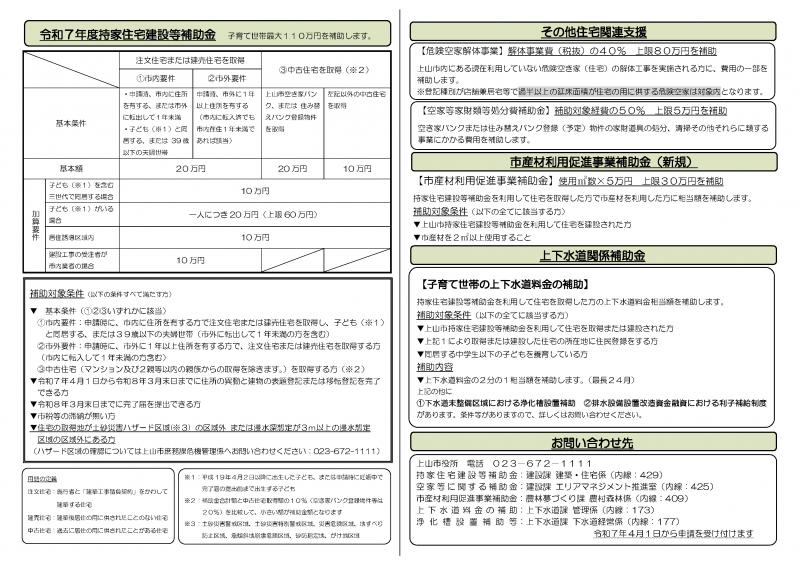 令和７年度持家住宅建設等補助金　子育て世帯最大１１０万円を補助します。
注文住宅または建売住宅を取得
③中古住宅を取得（※２）
①市内要件
②市外要件
基本条件
・申請済、市内に住所を有する、または市外に転出して１年未満
・子ども（※１）と同居する、または３９歳以下の夫婦世帯
・申請済、市外に１年以上住所を有する（市内に転入済でも市内在住１年未満であれば該当）
上山市空き家バンク、または 住み替えバンク登録物件を取得
左記以外の中古住宅を取得
基本額
２０万円
２０万円
１０万円
加算要件
子ども（※１）を含む三世代で同居する場合
１０万円
子ども（※１）がいる場合
一人につき２０万円（上限６０万円）
居住誘導区域内
１０万円
建設工事の受注者が市内業者の場合
１０万円
補助対象条件（以下の条件すべて満たす方）
▼　基本条件（①②③いずれかに該当）
①市内要件：申請時、市内に住所を有する方で注文住宅または建売住宅を取得し、子ども（※１）
と同居する、または３９歳以下の夫婦世帯（市外に転出して１年未満の方を含む）
②市外要件：申請時、市外に１年以上住所を有する方で、注文住宅または建売住宅を取得する方
（市内に転入して１年未満の方含む）
③中古住宅（マンション及び２親等以内の親族からの取得を除きます。）を取得する方（※２）
▼令和７年４月１日から令和８年３月末日までに住所の異動と建物の表題登記または移転登記を完了
できる方
▼令和８年３月末日までに完了届を提出できる方
▼市税等の滞納が無い方
▼住宅の取得地が土砂災害ハザード区域（※３）の区域外 または浸水深想定が３ｍ以上の浸水想定
区域の区域外にある方
（ハザード区域の確認については上山市庶務課危機管理係へお問い合わせください：023-672-1111）
用語の定義
注文住宅：施行者と「建築工事請負契約」をかわして
建築する住宅
建売住宅：建築後居住の用に供されたことのない住宅
中古住宅：過去に居住の用に供されたことがある住宅
※１：平成１９年４月２日以降に出生した子ども、または申請時に妊娠中で
完了届の提出前までに出生する子ども
※２：補助金合計額と中古住宅取得額の１０％（空き家バンク登録物件等は
２０％）を比較して、小さい額が補助金額となります
※３：土砂災害警戒区域、土砂災害特別警戒区域、災害危険区域、地すべり
防止区域、急傾斜地崩壊危険区域、砂防指定地、がけ地区域
その他住宅関連支援
【危険空家解体事業】解体事業費（税抜）の４０％　上限８０万円を補助
上山市内にある現在利用していない危険空き家（住宅）の解体工事を実施される方に、費用の一部を
補助します。
※登記種別が店舗兼居宅等で過半以上の延床面積が住宅の用に供する危険空家は対象内となります。
【空家等家財類等処分費補助金】補助対象経費の５０％　上限５万円を補助
空き家バンクまたは住み替えバンク登録（予定）物件の家財道具の処分、清掃その他それらに類する
事業にかかる費用を補助します。
市産材利用促進事業補助金（新規）
【市産材利用促進事業補助金】使用㎥数×５万円　上限３０万円を補助
持家住宅建設等補助金を利用して住宅を取得した方で市産材を利用した方に相当額を補助します。
補助対象条件（以下の全てに該当する方）
▼上山市持家住宅建設等補助金を利用して住宅を建設された方
▼市産材を２㎥以上使用すること
上下水道関係補助金
【子育て世帯の上下水道料金の補助】
持家住宅建設等補助金を利用して住宅を取得した方の上下水道料金相当額を補助します。
補助対象条件（以下の全てに該当する方）
▼上山市持家住宅建設等補助金を利用して住宅を取得または建設された方
▼上記１により取得または建設した住宅の所在地に住民登録をする方
▼同居する中学生以下の子どもを養育している方
補助内容
▼上下水道料金の２分の１相当額を補助します。（最長２４月）
上記の他に
①下水道未整備区域における浄化槽設置補助　②排水設備設置改造資金融資における利子補給制度
があります。条件等がありますので、詳しくはお問い合わせください。
お問い合わせ先
上山市役所　電話　０２３－６７２－１１１１
持家住宅建設等補助金：建設課 建築・住宅係（内線：429）
空家等に関する補助金：建設課 エリアマネジメント推進室（内線：425）
市産材利用促進事業補助金：農林夢づくり課 農村森林係（内線：409）
上下水道料金の補助：上下水道課 管理係（内線：173）
浄化槽設置補助等：上下水道課 下水道経営係（内線：177）
令和７年４月１日から申請を受け付けます